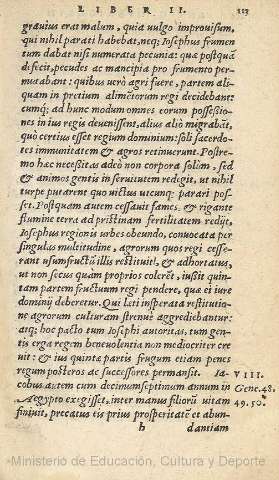 LIBER II. 113
grauius erat malum, quia uulgo improuisum,
qui nihil parati habebat, neq; Iosephus frumen
tum dabat nisi numerata pecunia: qua postquã
deficit, pecudes ac mancipia pro frumento per-
mutabant: quibus uerò agri fuere, partem ali-
quam in pretium alimētorum regi decidebant:
cumq; ad hunc modum omnes eorum possessio-
nes in ius regis deuenissent, alius aliò migrabãt,
quò certius esset regium dominium: soli sacerdo-
tes immunitatem & agros retinuerunt. Postre-
mo hæc necessitas adeò non corpora solùm, sed
& animos gentis in seruitutem redegit, ut nihil
turpe putarent quo uictus utcunq; parari pos-
set. Postquam autem cessauit fames, & rigante
flumine terra ad pristinam fertilitatem redijt,
Iosephus regionis urbes obeundo, conuocata per
singulas multitudine, agrorum quos regi cesse-
rant usumfructū illis restituit, & adhortatus,
ut non secus quàm proprios colerēt, iussit quin-
tam partem fructuum regi pendere, quæ ei iure
dominij deberetur. Qui læti insperata restitutio
ne agrorum culturam strenuè aggrediebantur:
atq; hoc pacto tum Iosephi autoritas, tum gen-
tis erga regem beneuolentia non mediocriter cre
uit: & ius quinta partis frugum etiam penes
regum posteros ac successores permansit. Ia- VIII.
cobus autem cum decimumseptimum annum in Gene. 48.
Aegypto exegisset, inter manus filiorū uitam 49. 50.
finiuit, precatus eis prius prosperitatē et abun
h dantiam
Ministerio de Educación, Cultura y Deporte